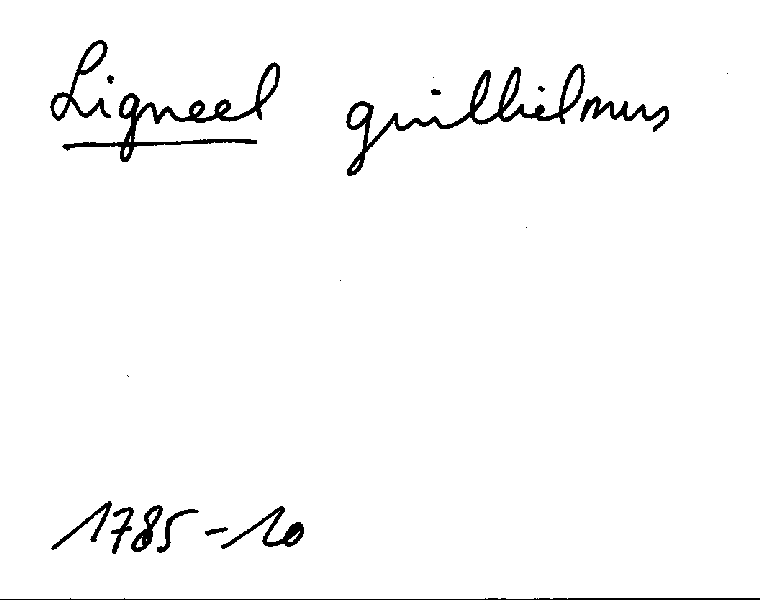 Ligneel guillielmus
1785-10